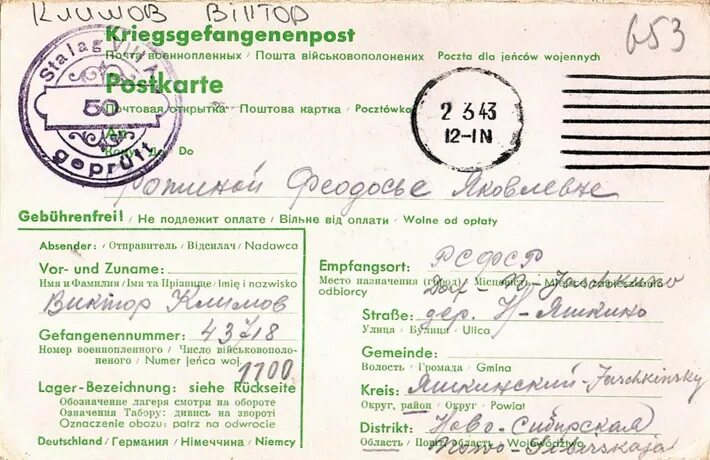 Климов Віктор
Kriegsgefangenenpost
653
Почта военнопленных / Пошта військовополонених Poczta dla jeńców wojennych
Stalag VIII A
50
geprüft
Postkarte
Почтовая открытка / Поштова картка / Pocztówka
2 3 43
12-1N
An
Кому До Do
Фотиной Феодосье Яковлевне
Gebührenfrei! / Не подлежит оплате / Вільне від оплати / Wolne od opłaty
Absender: / Отправитель / Відсилач / Nadawca
Vor- und Zuname:
Имя и Фамилия / Імя та Прізвище / Imię i nazwisko
Виктор Климов
Gefangenennummer: 43718
Номер военнопленного / Число військовополоненого / Numer jeńca woj.
1700
Lager-Bezeichnung: siehe Rückseite
Обозначение лагеря смотри на обороте
Означення Табору: дивись на звороті
Oznaczenie obozu: patrz na odwrocie
Deutschland / Германия / Німеччина / Niemcy
Empfangsort: РСФСР
Место назначения (город) / Місцевість / Miejsce zamieszkania odbiorcy
Dorf - N - Jaschkino
Straße: дер. Н-Яшкино
Улица / Вулиця / Ulica
Gemeinde:
Волость / Громада / Gmina
Kreis: Яшкинский - Jaschkinsky
Округ, район / Округ / Powiat
Distrikt: Ново-Сибирская
Область / Повіт, область / Województwo
Nowo-Sibirskaja